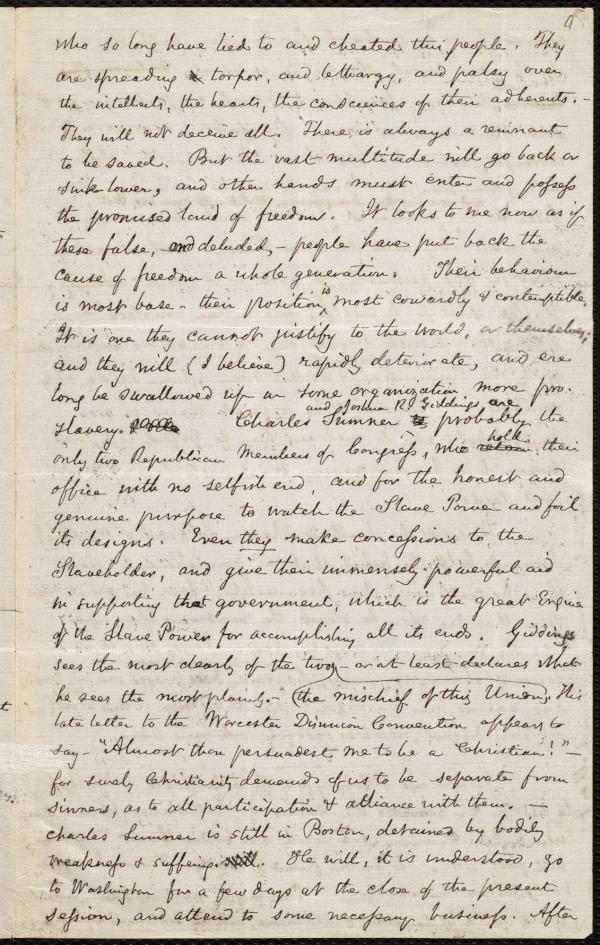 who so long have lied to and cheated this people. They
are spreading torpor, and lethargy, and palsy over
the intellects, the hearts, the consciences of their adherents. -
They will not deceive all. There is always a remnant
to be saved. But the vast multitude will go back or
sink lower, and other hands must enter and possess
the promised land of freedom. It looks to me now as if
these false, and deluded, - people have put back the
cause of freedom a whole generation. Their behaviour
is most base - their position is most cowardly & contemptible.
It is one they cannot justify to the world, or themselves;
and they will (I believe) rapidly deteriorate, and ere
long be swallowed up in some organization more pro-
slavery. Charles Sumner and Joshua R. Giddings are probably the
only two Republican Members of Congress, who hold their
office with no selfish end, and for the honest and
genuine purpose to watch the Slave Power and foil
its designs. Even they make concessions to the
Slaveholder, and give their immensely-powerful aid
in supporting that government, which is the great Engine
of the Slave Power for accomplishing all its ends. Giddings
sees the most clearly of the two, - or at least declares what
he sees the most plainly. - (the mischief of this Union). His
late letter to the Worcester Disunion Convention appears to
say - "Almost thou persuadest me to be a Christian!" -
for surely Christianity demands of us to be separate from
sinners, as to all participation & alliance with them. -
Charles Sumner is still in Boston, detained by bodily
weakness & suffering. He will, it is understood, go
to Washington for a few days at the close of the present
session, and attend to some necessary business. After